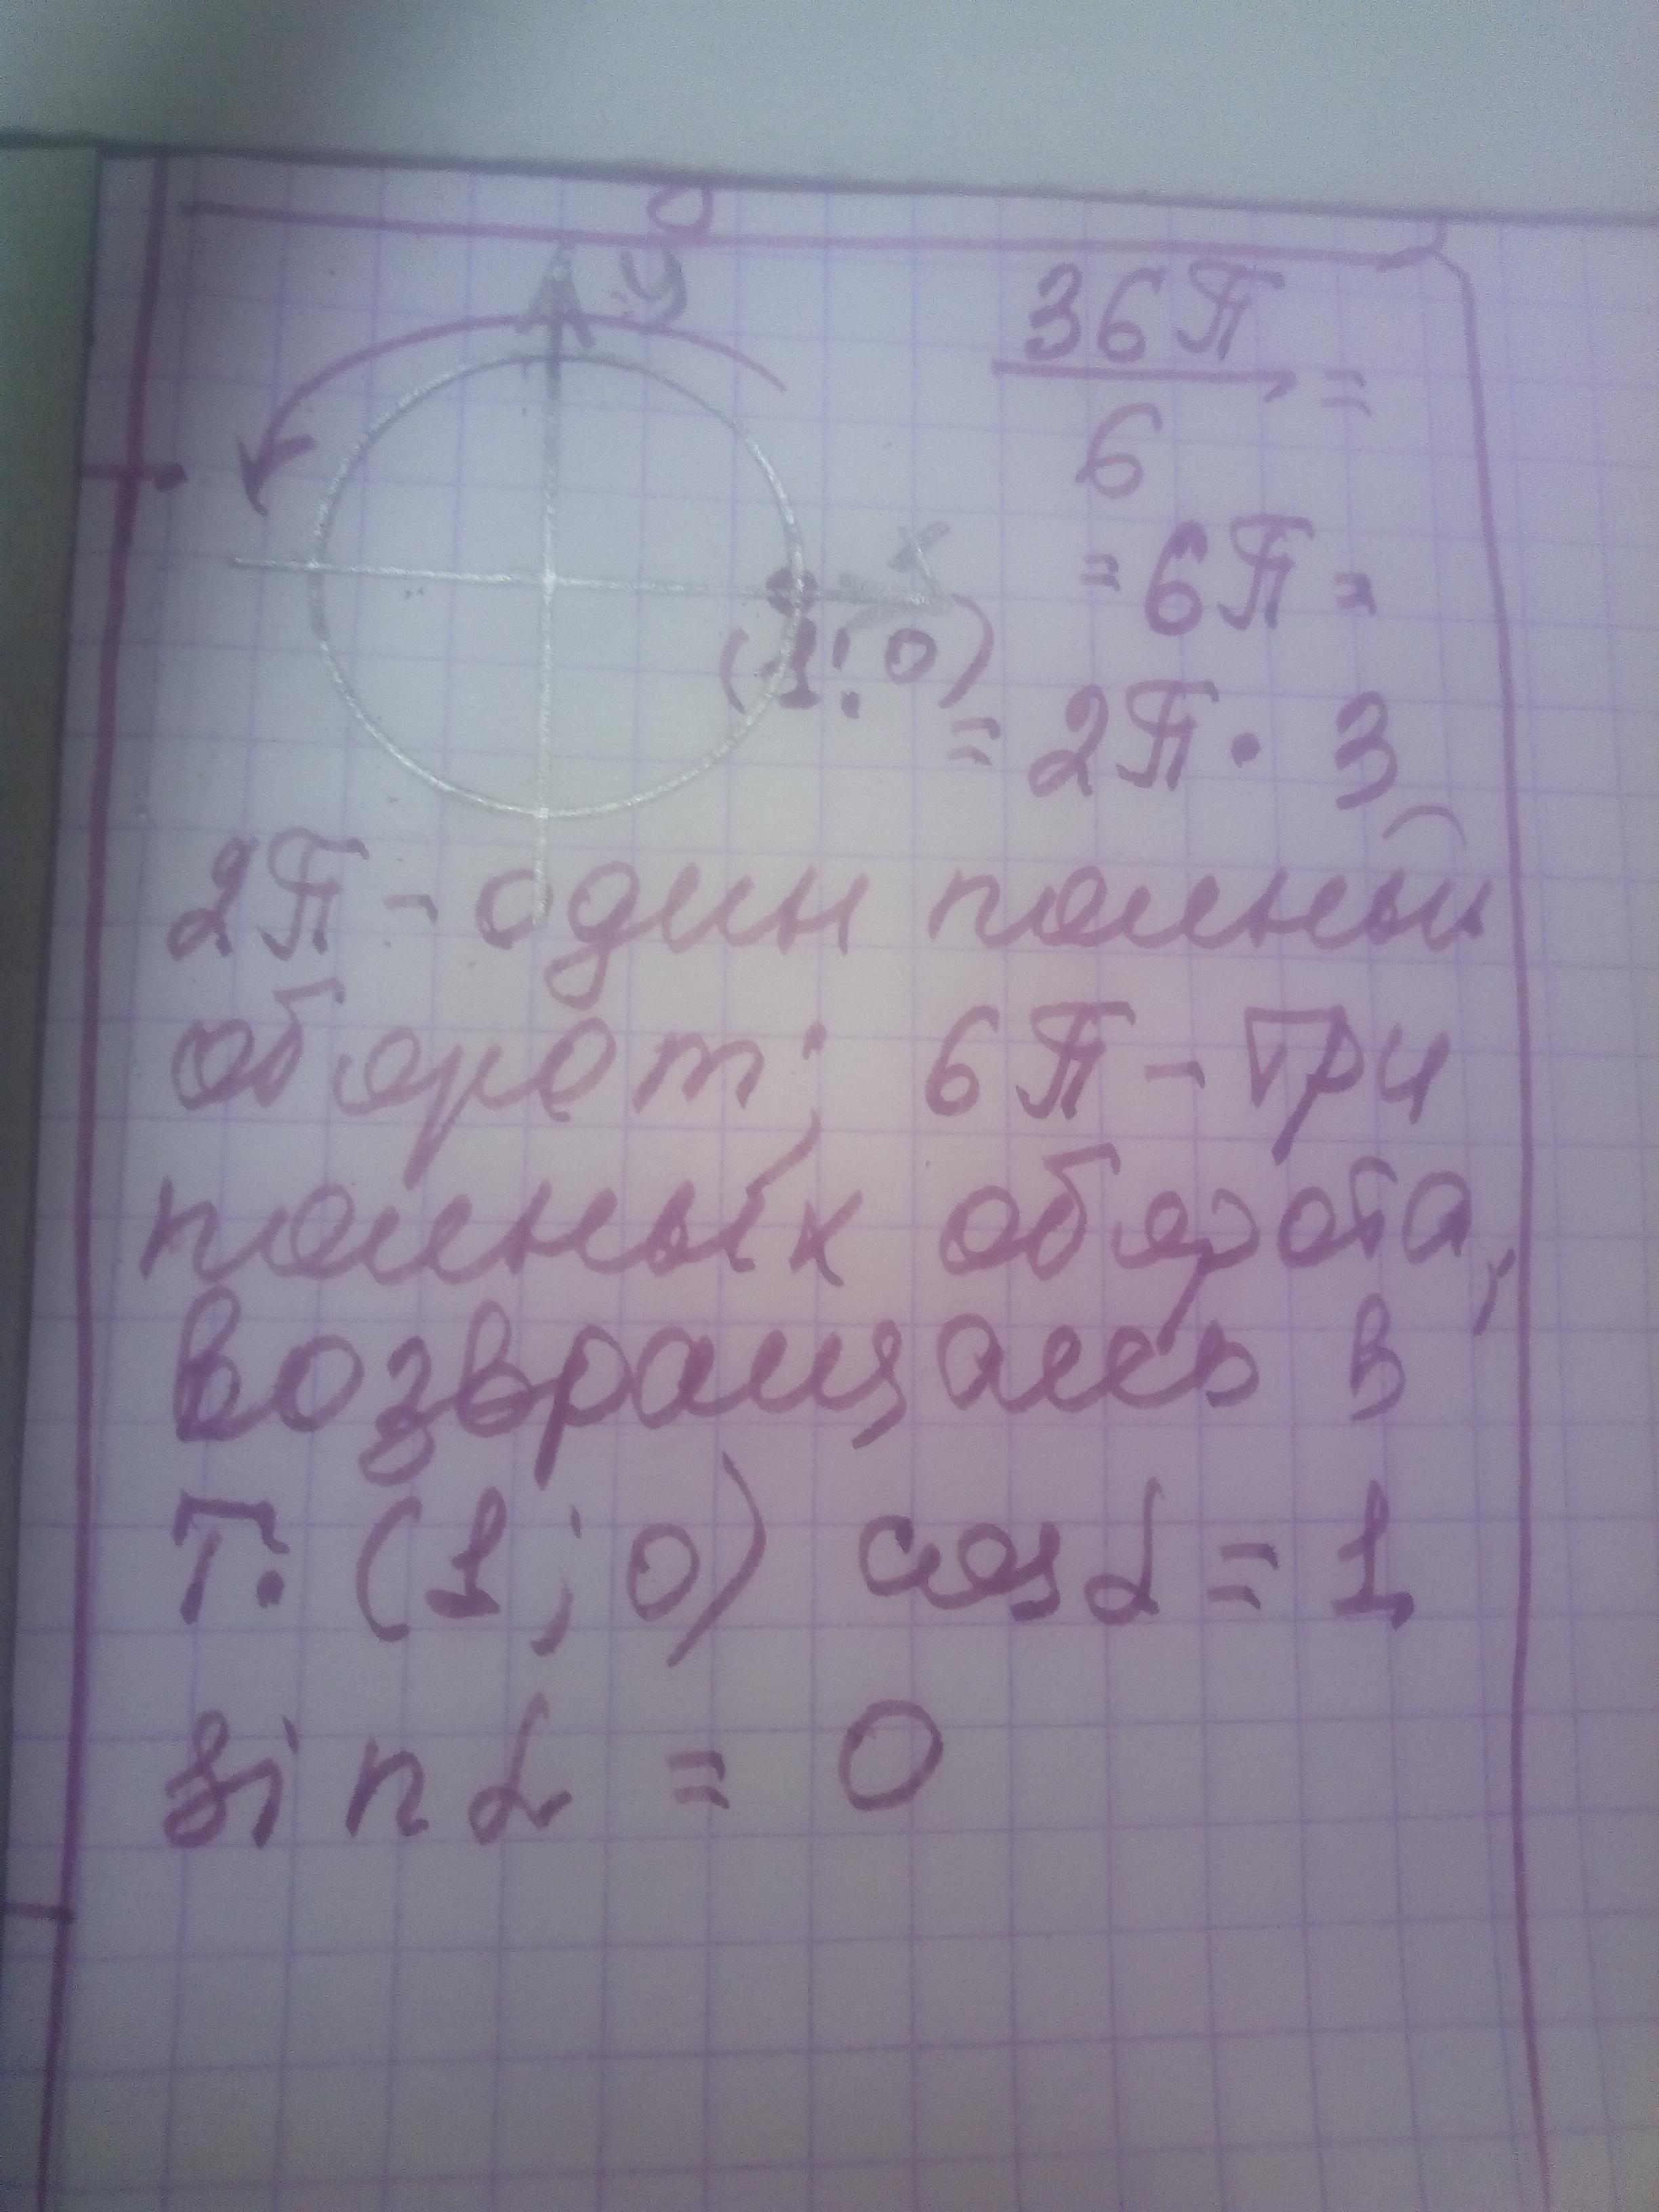 y
36π
6
=
x
= 6π =
(1; 0)
= 2π · 3
2π - один полный
оборот; 6π - три
полных оборота,
возвращаясь в
т. (1; 0) cos α = 1
sin α = 0